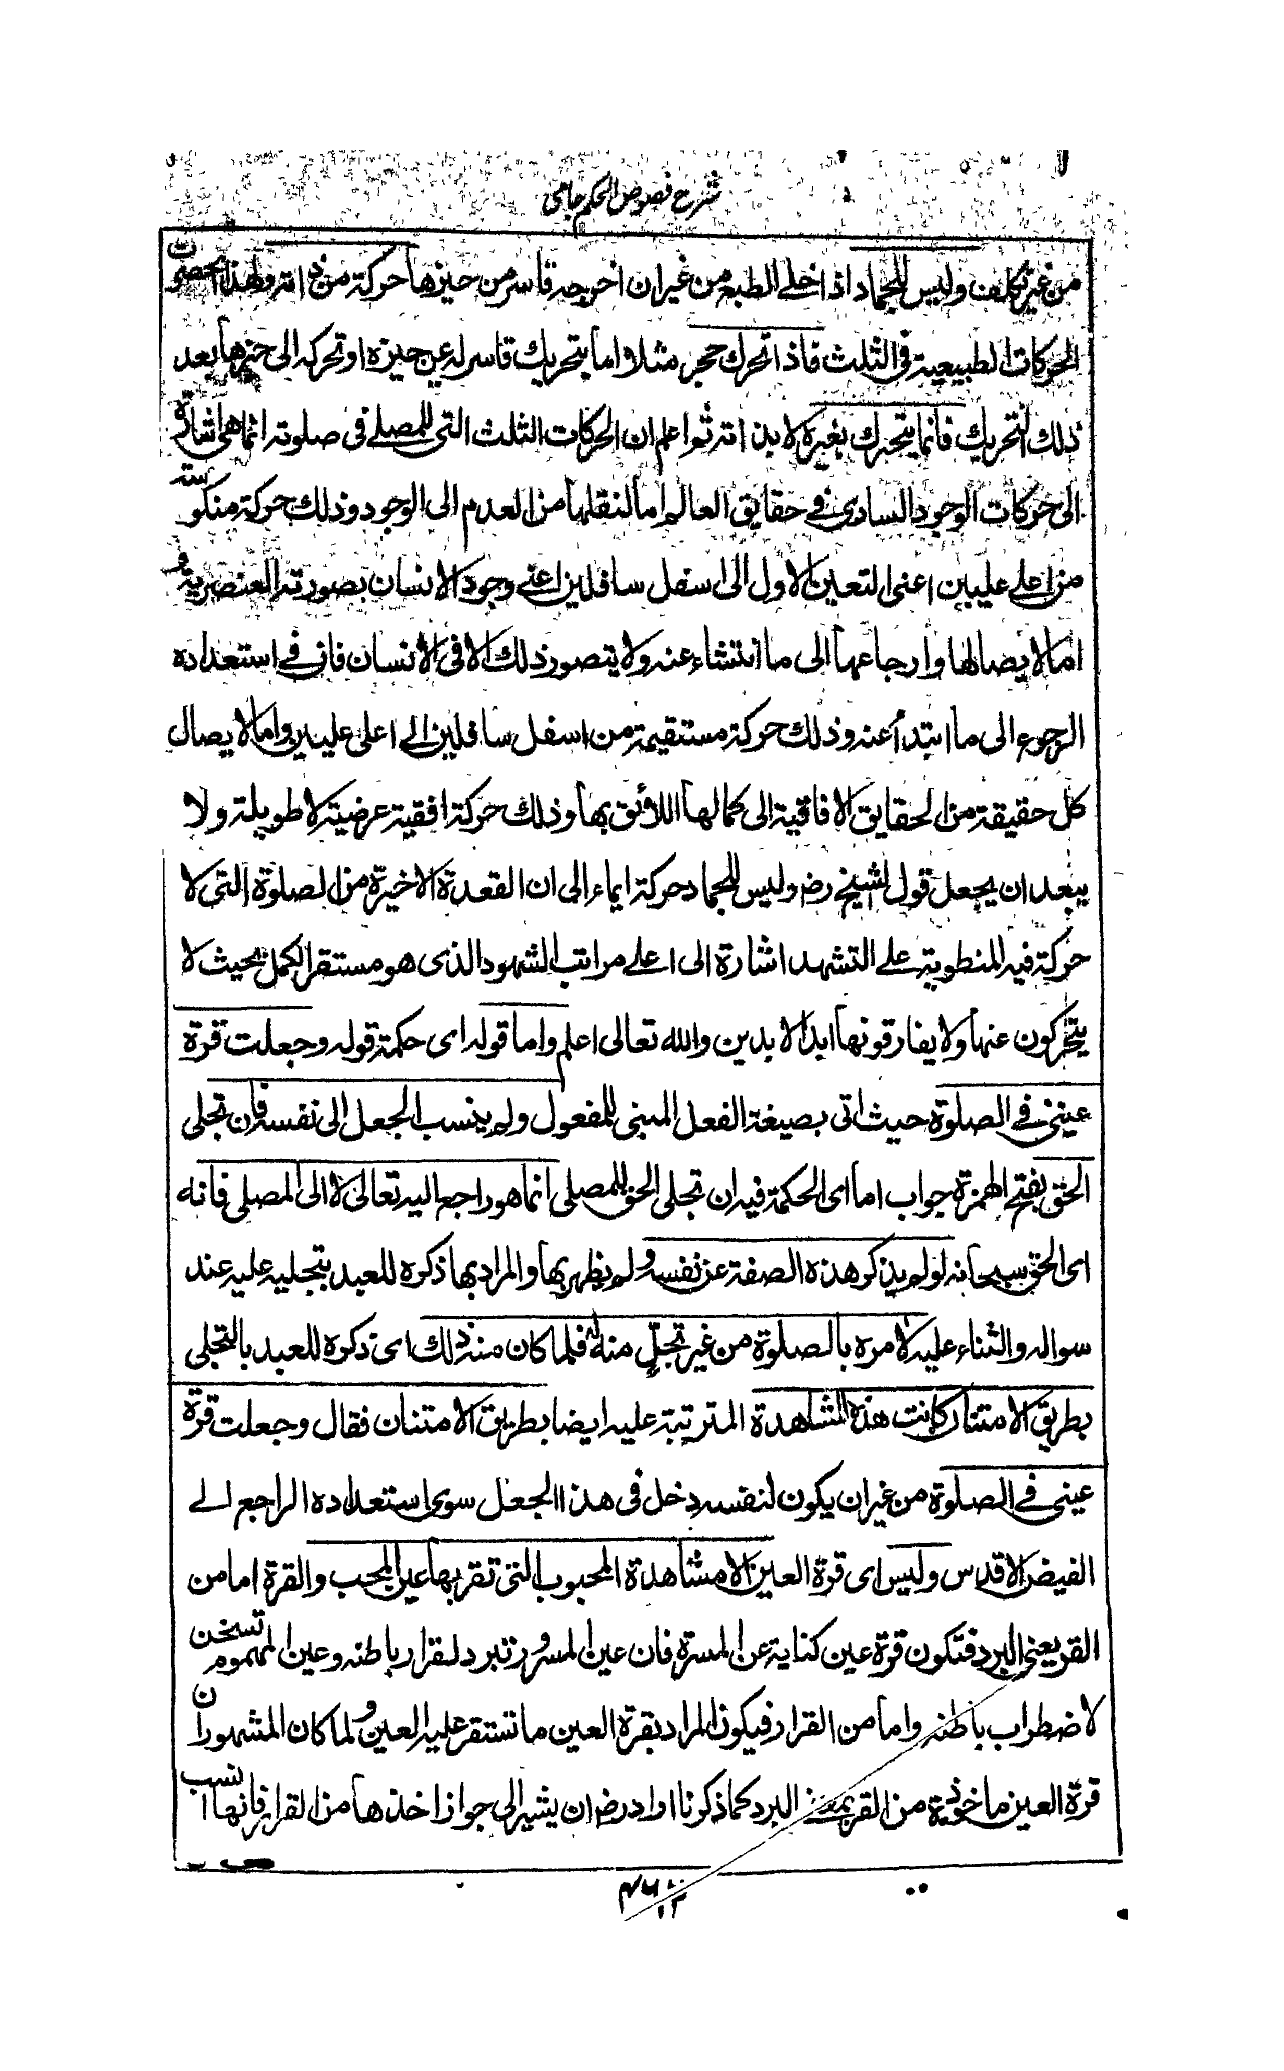 شرح فصوص الحكم جامى
من غير تكلف وليس للجماد اذا خلى الطبع من غير ان اخرجه قاسر من حيزها حركة من ذاته ولهذا انحصرت
الحركات الطبيعية فى الثلث فاذا تحرك حجر مثلا واما بتحريك قاسر له عن حيزه او تحركه الى حيزها بعد
ذلك التحريك فانما يتحرك بغيره لا بذاته ثم اعلم ان الحركات الثلث التى للمصلے فى صلوته انما هى اشارة
الى حركات الوجود السارى فے حقايق العالم اما لنقلها من العدم الى الوجود وذلك حركة منكوسته
من اعلے عليين اعنى التعين الاول الى اسفل سافلين اعنے وجود الانسان بصورته العنصرية و
اما لايصالها وارجاعها الى ما انتشاء عنه ولا يتصور ذلك الا فى الانسان فان فے استعداده
الرجوع الى ما ابتدأ عنه وذلك حركة مستقيمة من اسفل سافلين الے اعلى عليين واما لايصال
كل حقيقة من الحقايق الافاقية الى كمالها اللائق بها وذلك حركة افقية عرضية لا طويلة ولا
يبعد ان يجعل قول الشيخ رض وليس للجماد حركة ايماء الى ان القعدة الاخيرة من الصلوة التى لا
حركة فيه المنطوية علے التشهد اشارة الى اعلے مراتب الشهود الذى هو مستقر الكمل بحيث لا
يتحركون عنها ولا يفارقونها ابد الابدين والله تعالى اعلم واما قوله اى حكمة قوله وجعلت قرة
عينى فے الصلوة حيث اتى بصيغة الفعل المبنى للمفعول ولم ينسب الجعل الى نفسه فان تجلى
الحق بفتح الهمزة جواب اما اى الحكمة فيه ان تجلى الحق للمصلى انما هو راجع اليه تعالى لا الى المصلى فانه
اى الحق سبحانه لو لم يذكر هذه الصفة عن نفسه ولم يظهر بها والمراد بها ذكره للعبد بتجليه عليه عند
سواله والثناء عليه لامره بالصلوة من غير تجلّ منه له فلما كان منه ذلك اى ذكره للعبد بالتجلى
بطريق الامتنان كانت هذه المشاهدة المترتبة عليه ايضا بطريق الامتنان فقال وجعلت قرة
عينى فے الصلوة من غير ان يكون لنفسه دخل فى هذا الجعل سوى استعداده الراجع الے
الفيض الاقدس وليس اى قرة العين الا مشاهدة المحبوب التى تقر بها عين المحب والقرة اما من
القر يعنى البرد فتكون قرة عين كناية عن المسرة فان عين المسرور تبرد لقرار باطنه وعين المهموم تسخن
لاضطراب باطنه واما من القرار فيكون المراد بقرة العين ما تستقر عليه العين ولما كان المشهور ان
قرة العين ماخوذة من القر بمعنے البرد كما ذكرنا اراد رض ان يشير الى جواز اخذها من القرار فانها انسب